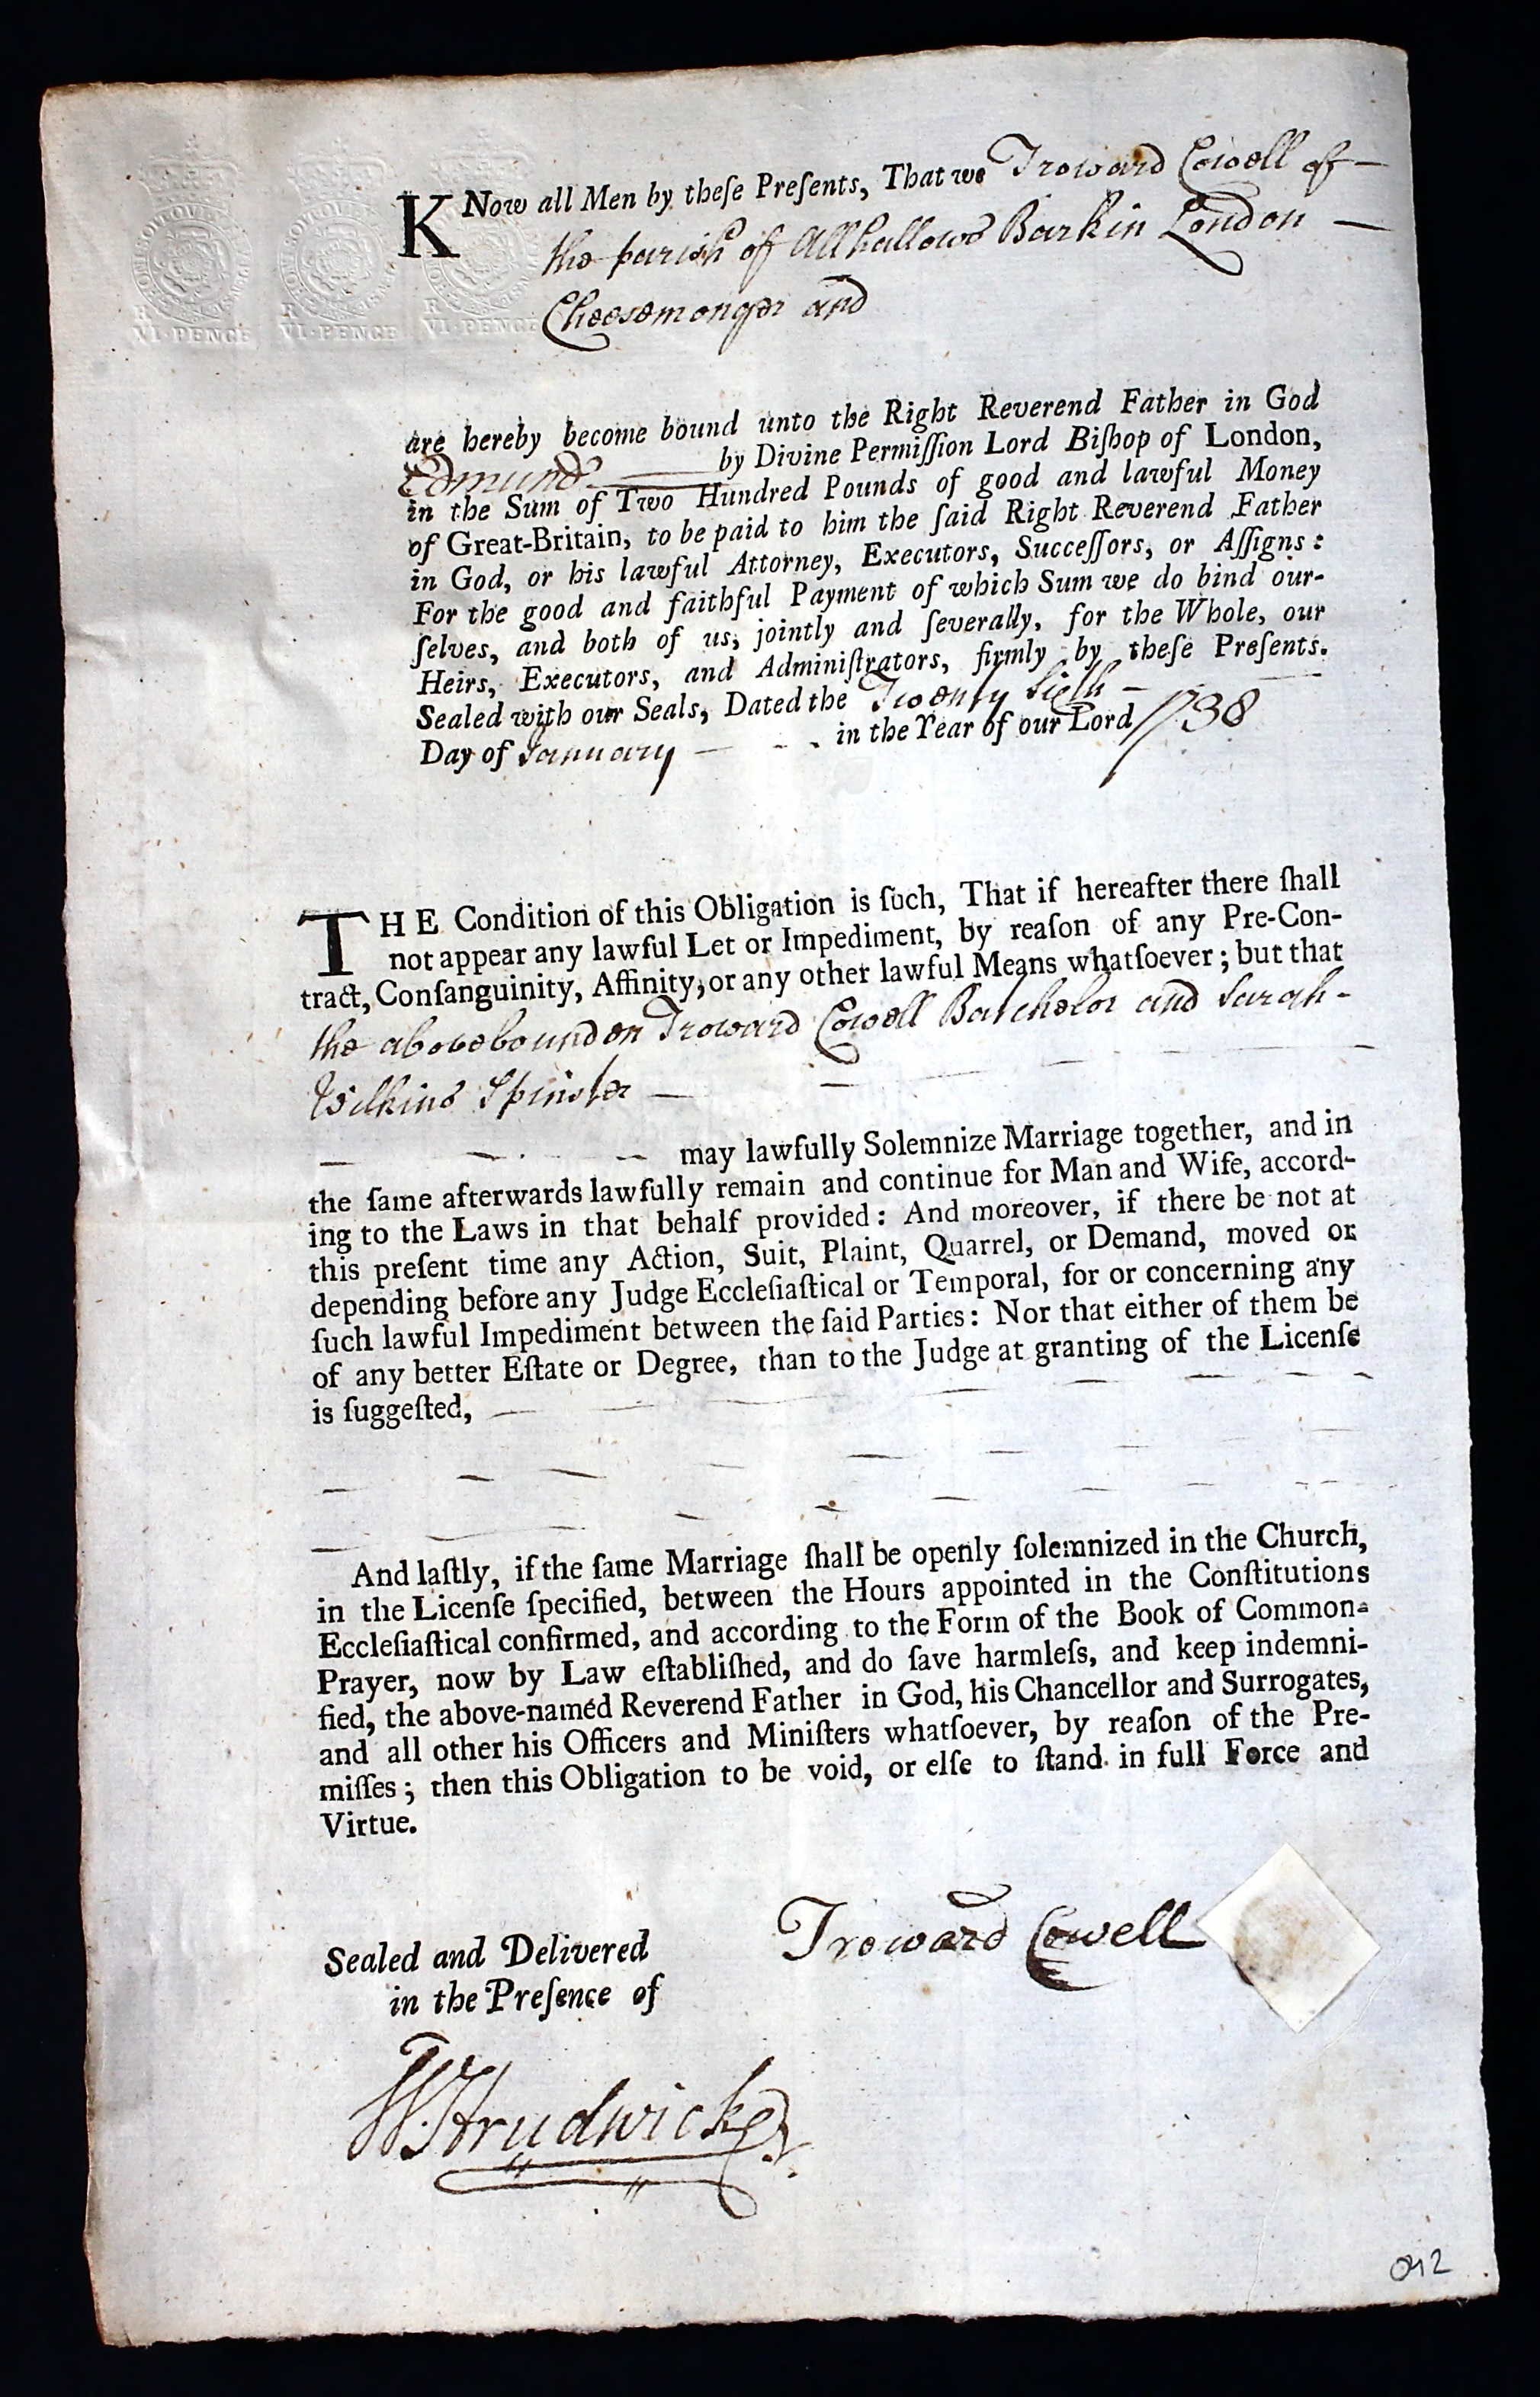 HONI SOIT QUI MAL Y PENSE
VI·PENCE
VI·PENCE
VI·PENCE
KNow all Men by theſe Preſents, That we Troward Cowell of —
the parish of Allhallows Barkin London —
Cheesemonger and
are hereby become bound unto the Right Reverend Father in God
Edmund — by Divine Permiſſion Lord Biſhop of London,
in the Sum of Two Hundred Pounds of good and lawful Money
of Great-Britain, to be paid to him the ſaid Right Reverend Father
in God, or his lawful Attorney, Executors, Succeſſors, or Aſſigns:
For the good and faithful Payment of which Sum we do bind our-
ſelves, and both of us, jointly and ſeverally, for the Whole, our
Heirs, Executors, and Adminiſtrators, firmly by theſe Preſents.
Sealed with our Seals, Dated the Twenty Sixth —
Day of January — in the Year of our Lord 1738
THE Condition of this Obligation is ſuch, That if hereafter there ſhall
not appear any lawful Let or Impediment, by reaſon of any Pre-Con-
tract, Conſanguinity, Affinity, or any other lawful Means whatſoever; but that
the abovebounden Troward Cowell Batchelor and Sarah -
Wilkins Spinster —
may lawfully Solemnize Marriage together, and in
the ſame afterwards lawfully remain and continue for Man and Wife, accord-
ing to the Laws in that behalf provided: And moreover, if there be not at
this preſent time any Action, Suit, Plaint, Quarrel, or Demand, moved or
depending before any Judge Eccleſiaſtical or Temporal, for or concerning any
ſuch lawful Impediment between the ſaid Parties: Nor that either of them be
of any better Eſtate or Degree, than to the Judge at granting of the Licenſe
is ſuggeſted,
And laſtly, if the ſame Marriage ſhall be openly ſolemnized in the Church,
in the Licenſe ſpecified, between the Hours appointed in the Conſtitutions
Eccleſiaſtical confirmed, and according to the Form of the Book of Common-
Prayer, now by Law eſtabliſhed, and do ſave harmleſs, and keep indemni-
fied, the above-named Reverend Father in God, his Chancellor and Surrogates,
and all other his Officers and Miniſters whatſoever, by reaſon of the Pre-
miſſes; then this Obligation to be void, or elſe to ſtand in full Force and
Virtue.
Sealed and Delivered
in the Preſence of
Troward Cowell
W. Strudwicke
042